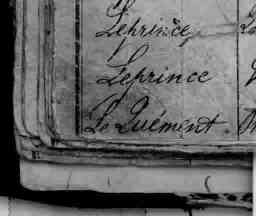 Leprince
Leprince
Le Quément